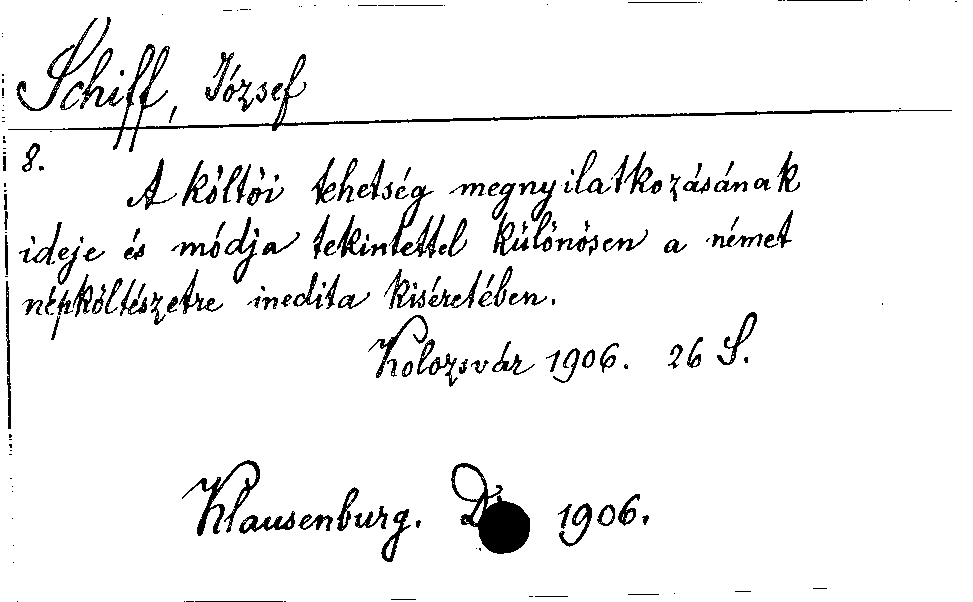 Schiff, József
8.
A költöi tehetség megnyilatkozásának
ideje és módja tekintettel különösen a német
népköltészetre inedita kiséretében.
Kolozsvár 1906. 26 S.
Klausenburg. 1906.